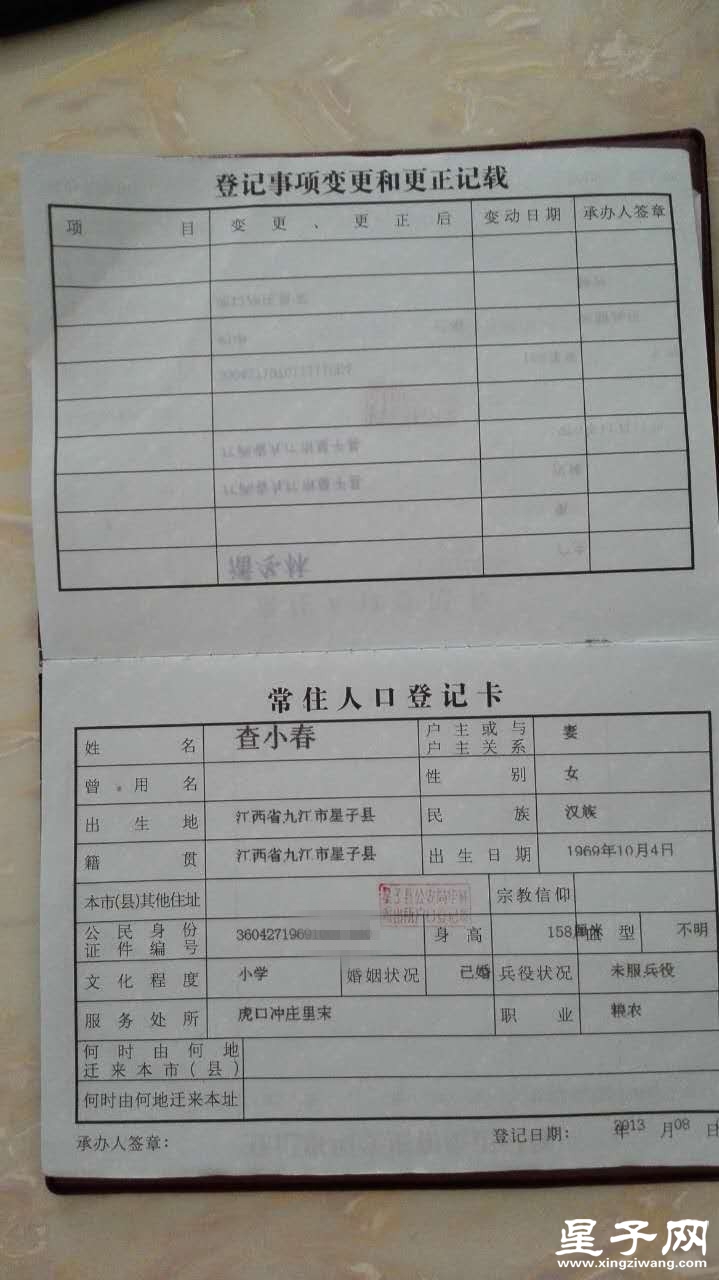 登记事项变更和更正记载
项目 变更、更正后 变动日期 承办人签章
常住人口登记卡
姓名 查小春 户主或与户主关系 妻
曾用名 性别 女
出生地 江西省九江市星子县 民族 汉族
籍贯 江西省九江市星子县 出生日期 1969年10月4日
本市(县)其他住址 宗教信仰
公民身份证件编号 3604271969 身高 158厘米 血型 不明
文化程度 小学 婚姻状况 已婚 兵役状况 未服兵役
服务处所 虎口冲庄里宋 职业 粮农
何时由何地迁来本市(县)
何时由何地迁来本址
承办人签章: 登记日期: 2013年08月 日
星子网
www.xingziwang.com